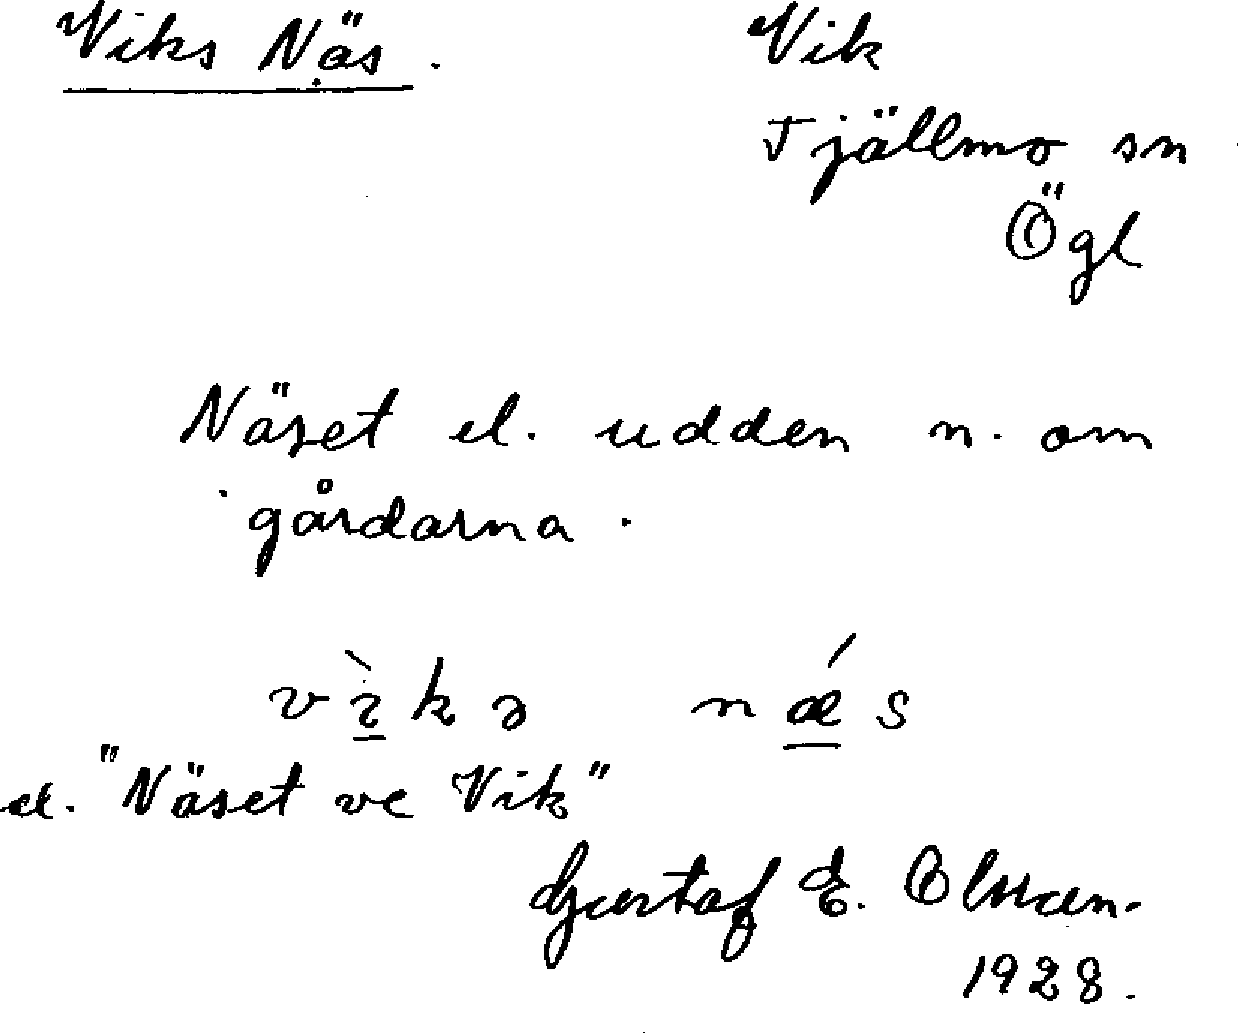 Viks Näs.
Vik
Tjällmo sn
Ögl
Näset el. udden n. om
gårdarna.
vìkə nǽs
el. "Näset ve Vik"
Gustaf E. Olsson.
1928.